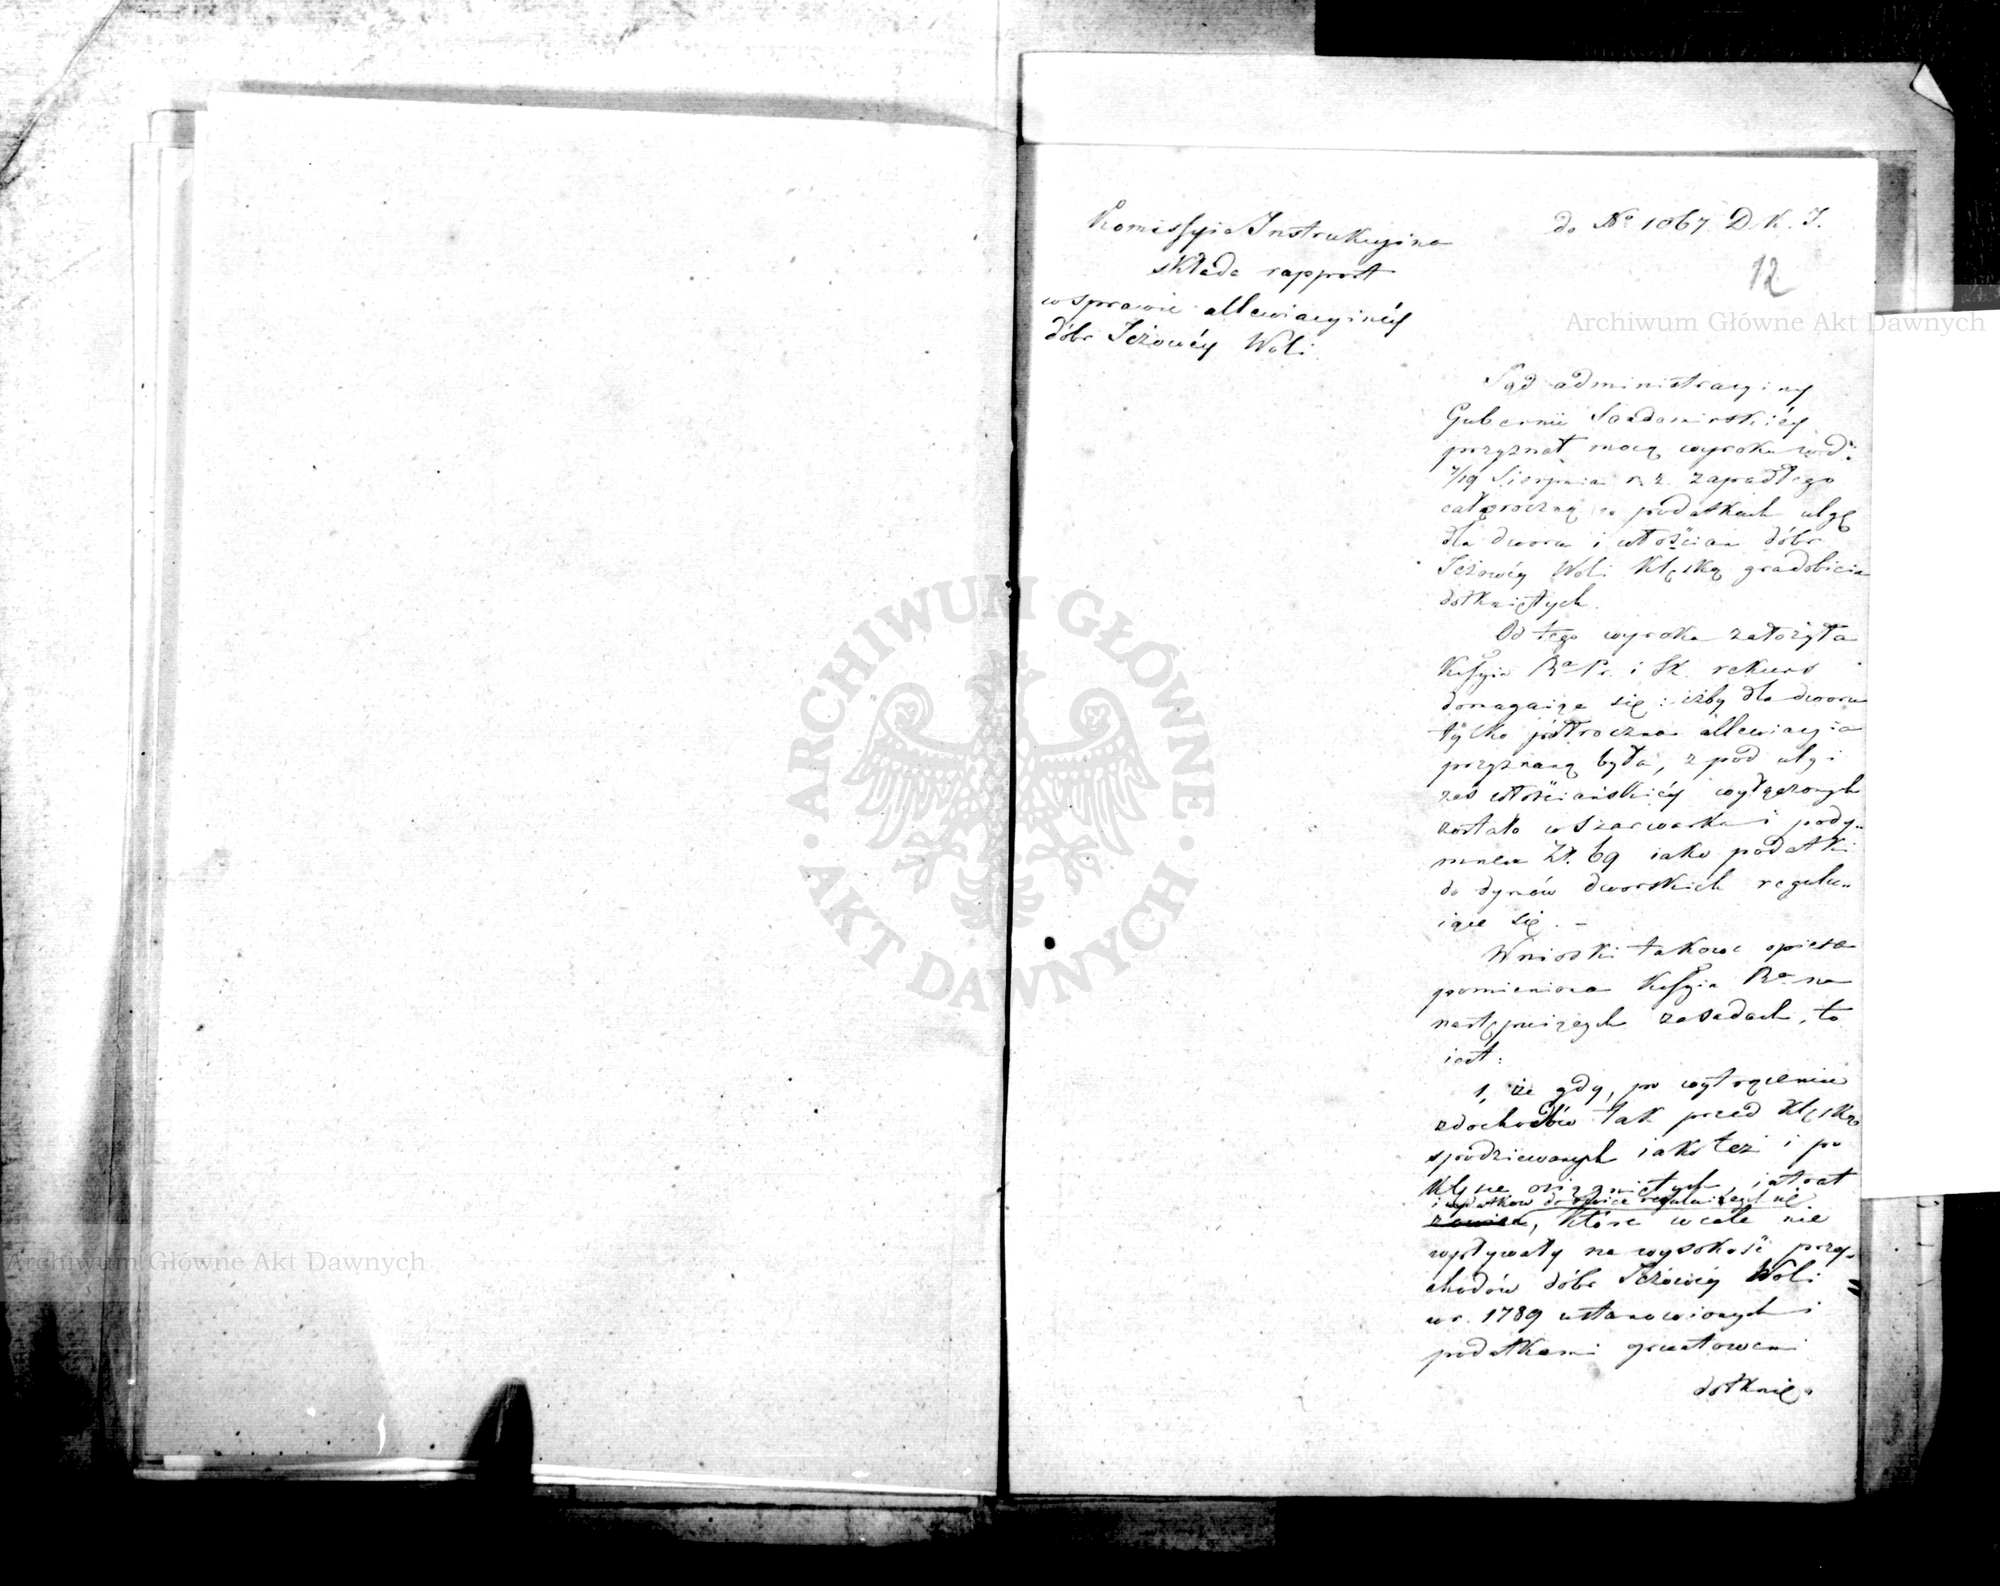 Komissyia Instrukcyina
składa rapport
w sprawie allewiacyinéy
dóbr Jeżowéy Woli
do No 1067 D. K. I.
12
Sąd administracyiny
Gubernii Sandomirskiéy
przyznał mocą wyroku w d:
7/19 Sierpnia r. z. zapadłego
całoroczną w podatkach ulgę
dla dworu i włościan dóbr
Jeżowéy Woli klęską gradobicia
dotkniętych.
Od tego wyroku założyła
Kssyia Ra Pr. i Sk. rekurs
domagaiąc się: iżby dla dworu
tylko półroczna allewiacyia
przyznaną była, z pod ulgi
zaś włościańskiéy wyłączonych
zostało w szarwarku i pody„
mnem Zł. 69 iako podatki
do dymów dworskich regulu„
iące się. –
Wnioski takowe opiera
pomieniona Kssyia Ra na
następuiących zasadach, to
iest:
1, że gdy, po wytrąceniu
z dochodów tak przed klęską
spodziewanych iako też i po
klęsce osiągniętych, intrat
i wydatków do
które wcale nie
wpływały na wysokość przy„
chodów dóbr Jeżowéy Woli
w r. 1789 ustanowionych i
podatkami gruntowemi
dotknię„
Archiwum Główne Akt Dawnych
Archiwum Główne Akt Dawnych
ARCHIWUM GŁÓWNE · AKT DAWNYCH ·